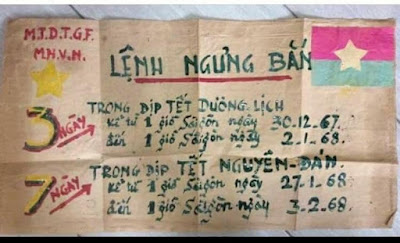 M.T.D.T.G.F.
M.N.V.N.
LỆNH NGƯNG BẮN
3 NGÀY
TRONG DỊP TẾT DƯƠNG LỊCH
kể từ 1 giờ Sàigòn ngày 30.12.67.
đến 1 giờ Sàigòn ngày 2.1.68.
7 NGÀY
TRONG DỊP TẾT NGUYÊN-ĐÁN.
kể từ 1 giờ Sàigòn ngày 27.1.68.
đến 1 giờ Sàigòn ngày 3.2.68.